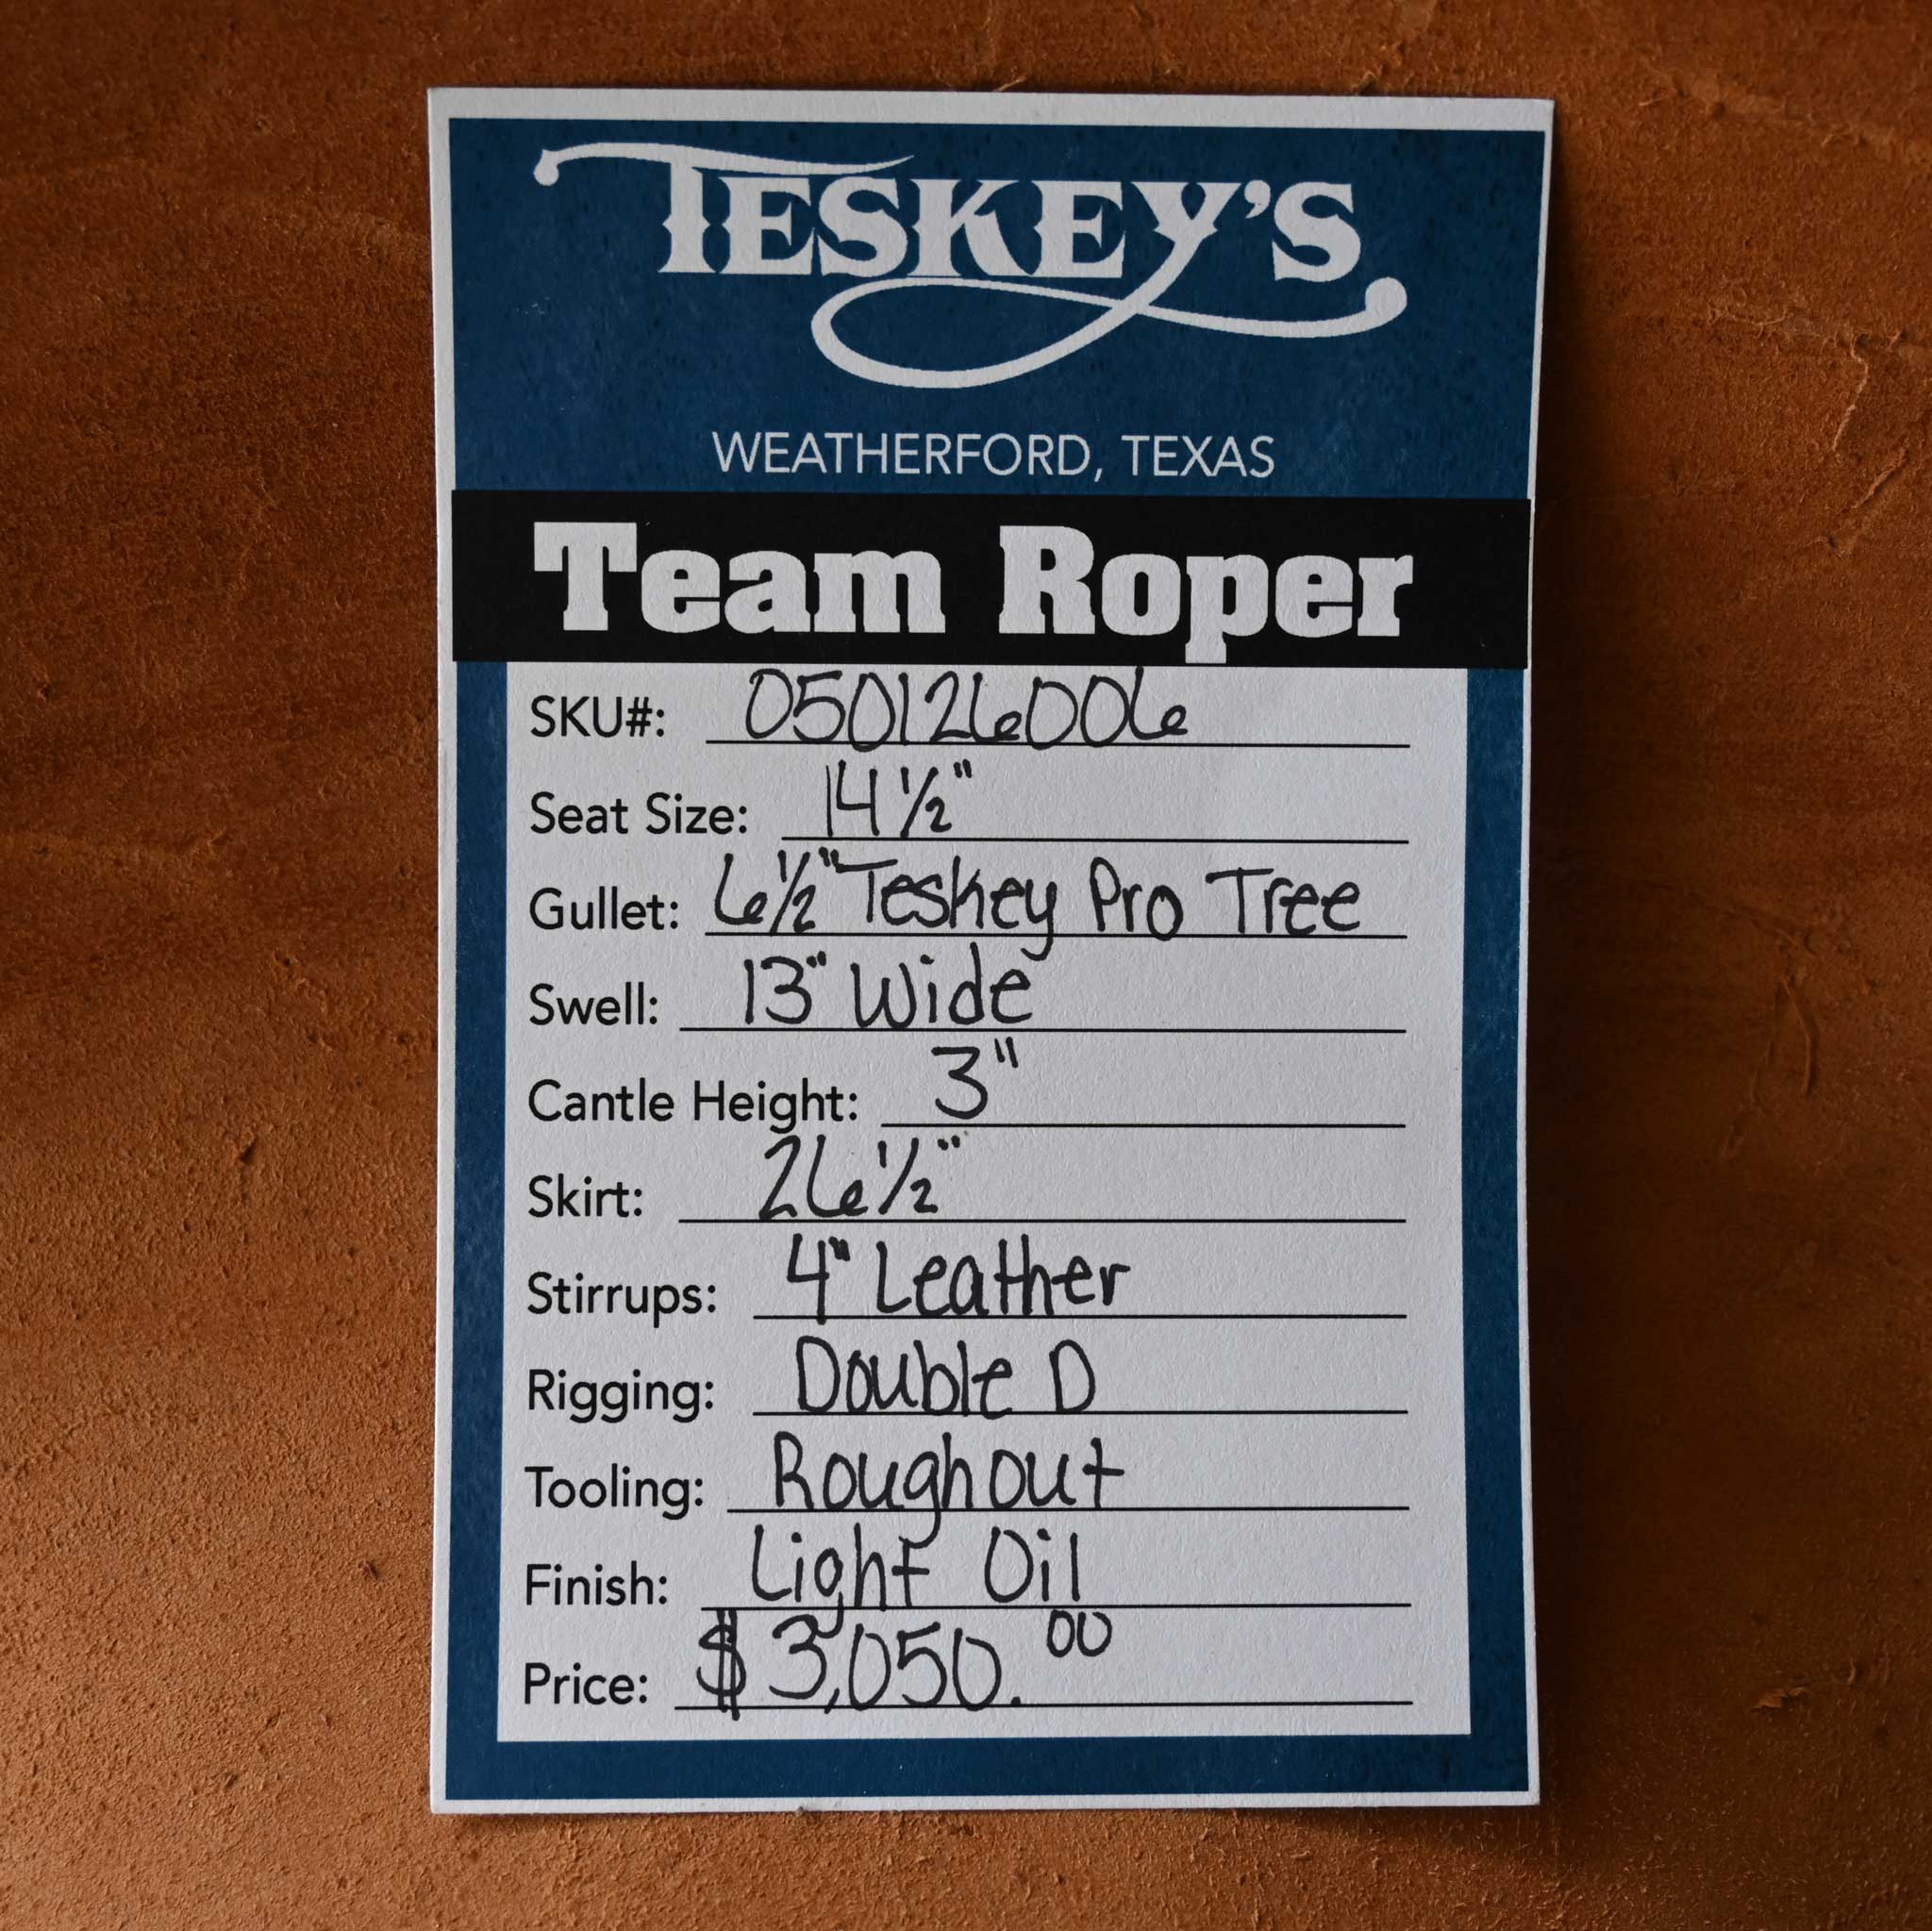 TESKEY'S
WEATHERFORD, TEXAS
Team Roper
SKU#: 050126006
Seat Size: 14 1/2"
Gullet: 6 1/2" Teskey Pro Tree
Swell: 13" Wide
Cantle Height: 3"
Skirt: 26 1/2"
Stirrups: 4" Leather
Rigging: Double D
Tooling: Roughout
Finish: Light Oil
Price: $3,050.00